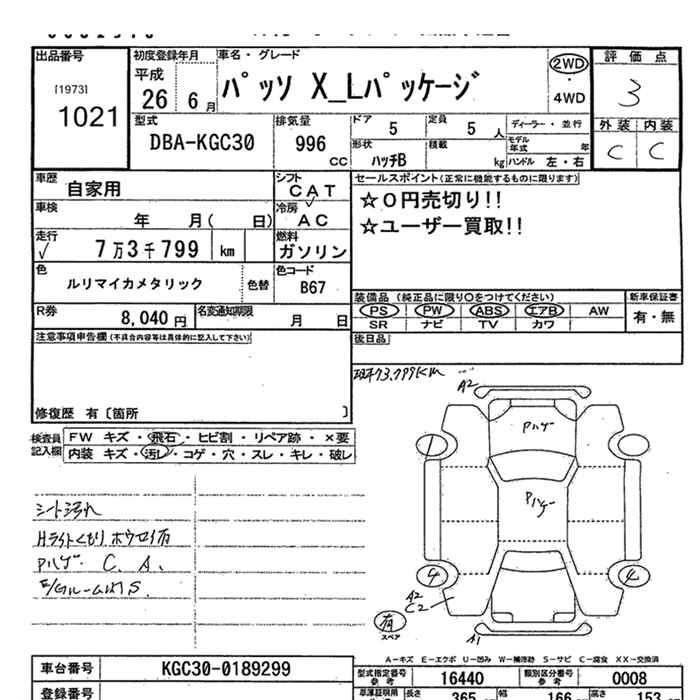 出品番号
[1973]
1021
初度登録年月
平成
26 6月
車名・グレード
パッソ X_Lパッケージ
2WD
・
4WD
評価点
3
外装 内装
C C
型式
DBA-KGC30
排気量
996
CC
ドア
5
定員
5人
ディーラー・並行
モデル年式 年
形状
ハッチB
積載
kg
ハンドル 左・右
車歴
自家用
シフト
CAT
車検
年 月( 日)
冷房
AC
走行
7万3千799 km
燃料
ガソリン
色
ルリマイカメタリック
色替
色コード
B67
R券
8,040円
名変通知期限
月 日
セールスポイント(正常に機能するものに限ります)
☆0円売切り!!
☆ユーザー買取!!
装備品 (純正品に限り○をつけてください)
PS PW ABS エアB AW
SR ナビ TV カワ
新車保証書
有・無
後日品
注意事項申告欄(不具合内容等は具体的に記入して下さい)
修復歴 有〔箇所 〕
検査員記入欄
FW キズ・飛石・ヒビ割・リペア跡・×要
内装 キズ・汚レ・コゲ・穴・スレ・キレ・破レ
73,799KM
A2
シート汚れ
Hライトくもり ホウロイ有
Pハゲ. C. A.
E/Gルーム内S.
Pハゲ
Pハゲ
1
4 4
A2
C2
A1
有
スペア
A-キズ E-エクボ U-凹み W-補修跡 S-サビ C-腐食 XX-交換済
車台番号
KGC30-0189299
型式指定番号
参考
16440
類別区分番号
参考
0008
登録番号
長さ
365
幅
166
高さ
153